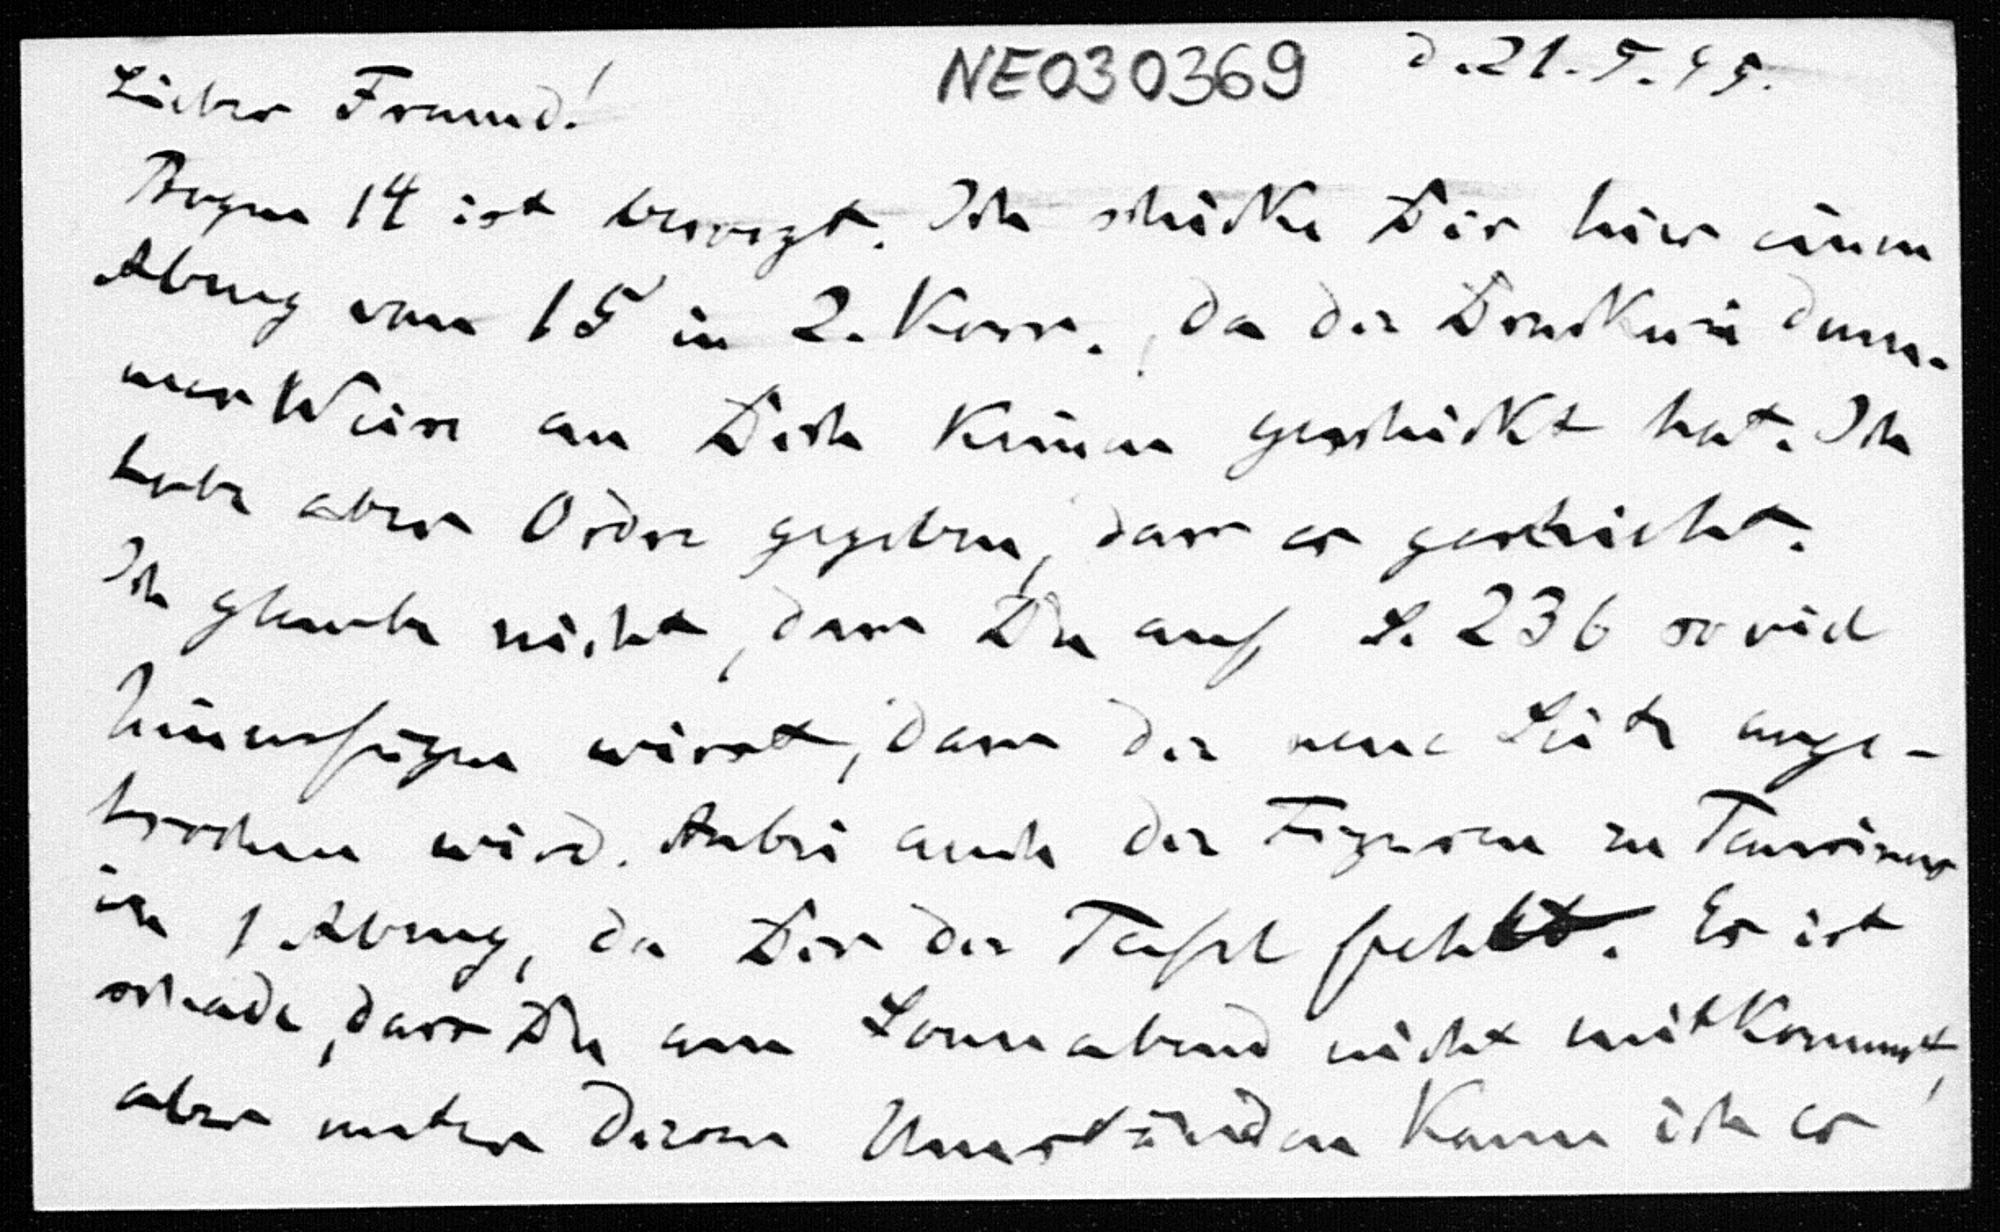 NE030369 d. 21.5.45.
Lieber Freund!
Bogen 14 ist besorgt. Ich schicke Dir hier einen
Abzug vom 15 in 2. Korr., da die Druckerei dum-
merWeise an Dich Keinen geschickt hat. Ich
habe aber Ordre gegeben, dass es geschieht.
Ich glaube nicht, dass Du auf S. 236 so viel
hineinfügen wirst, dass die neue Seite ange-
brochen wird. Anbei auch die Figuren zu Taurinus
in 1 Abzug, da Dir die Tafel fehlt. Es ist
schade, dass Du am Sonnabend nicht mitKommst,
aber unter diesen Umständen Kann ich es